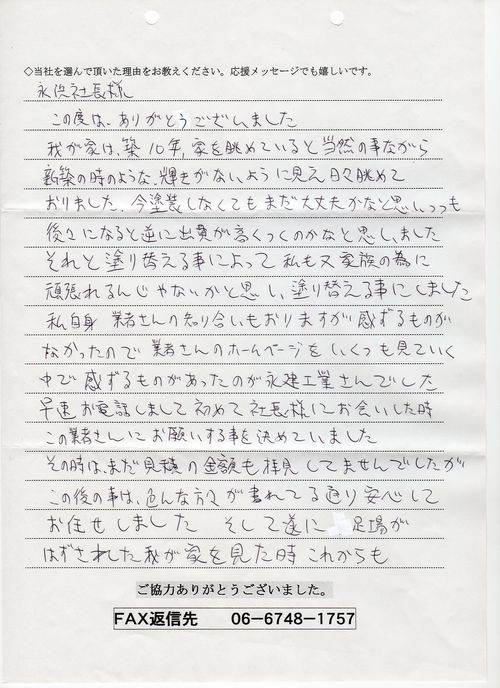 ◇当社を選んで頂いた理由をお教えください。応援メッセージでも嬉しいです。
永浜社長様
この度は、ありがとうございました
我が家は、築10年、家を眺めていると当然の事ながら
新築の時のような、輝きがないように見え日々眺めて
おりました。今塗装しなくてもまだ大丈夫かなと思いつつも
後々になると逆に出費が高くつくのかなと思いました
それと塗り替える事によって私も又家族の為に
頑張れるんじゃないかと思い、塗り替える事にしました
私自身 業者さんの知り合いもおりますが感ずるものが
なかったので 業者さんのホームページをいくつも見ていく
中で 感ずるものがあったのが永建工業さんでした
早速お電話しまして初めて社長様にお会いした時
この業者さんにお願いする事を決めていました
その時は、まだ見積の金額も拝見してませんでしたが
この後の事は、色んな方々が書れてる通り安心して
お任せしました そして遂に 足場が
はずされた我が家を見た時 これからも
ご協力ありがとうございました。
FAX返信先 06-6748-1757